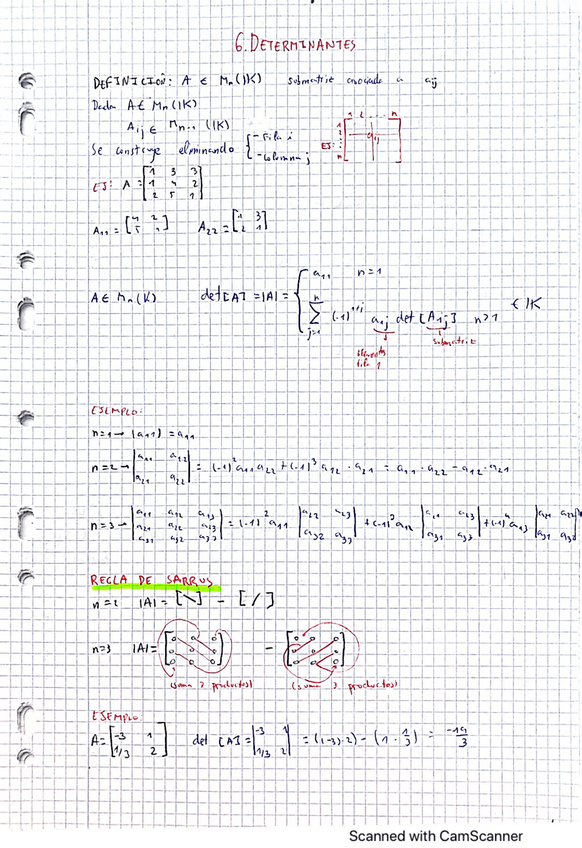 6. DETERMINANTES
DEFINICIÓN: A ∈ Mn(IK) submatriz asociada a aij
Dada A ∈ Mn(IK)
Aij ∈ Mn-1 (IK)
Se construye eliminando { - Fila i
- columna j
EJ: 1 2 ... n
1
2
n
aij
EJ: A = [1 3 3
1 4 2
2 5 1]
A11 = [4 2
5 1] A22 = [1 3
2 1]
A ∈ Mn(K) det[A] = |A| = { a11 n=1
∑ j=1 n (-1)^1+j a1j det [A1j] n>1 ∈ IK
elemento fila 1
submatriz
EJEMPLO:
n=1 → |a11| = a11
n=2 → |a11 a12
a21 a22| = (-1)^2 a11 a22 + (-1)^3 a12 · a21 = a11 · a22 - a12 · a21
n=3 → |a11 a12 a13
a21 a22 a23
a31 a32 a33| = (-1)^2 a11 |a22 a23
a32 a33| + (-1)^3 a12 |a21 a23
a31 a33| + (-1)^4 a13 |a21 a22
a31 a32|
REGLA DE SARRUS
n=2 |A| = [\] - [/]
n=3 |A| = [ ] - [ ]
(suma 3 productos) (suma 3 productos)
EJEMPLO:
A = [-3 1
1/3 2] det [A] = |-3 1
1/3 2| = ((-3)·2) - (1 · 1/3) = -19/3
Scanned with CamScanner